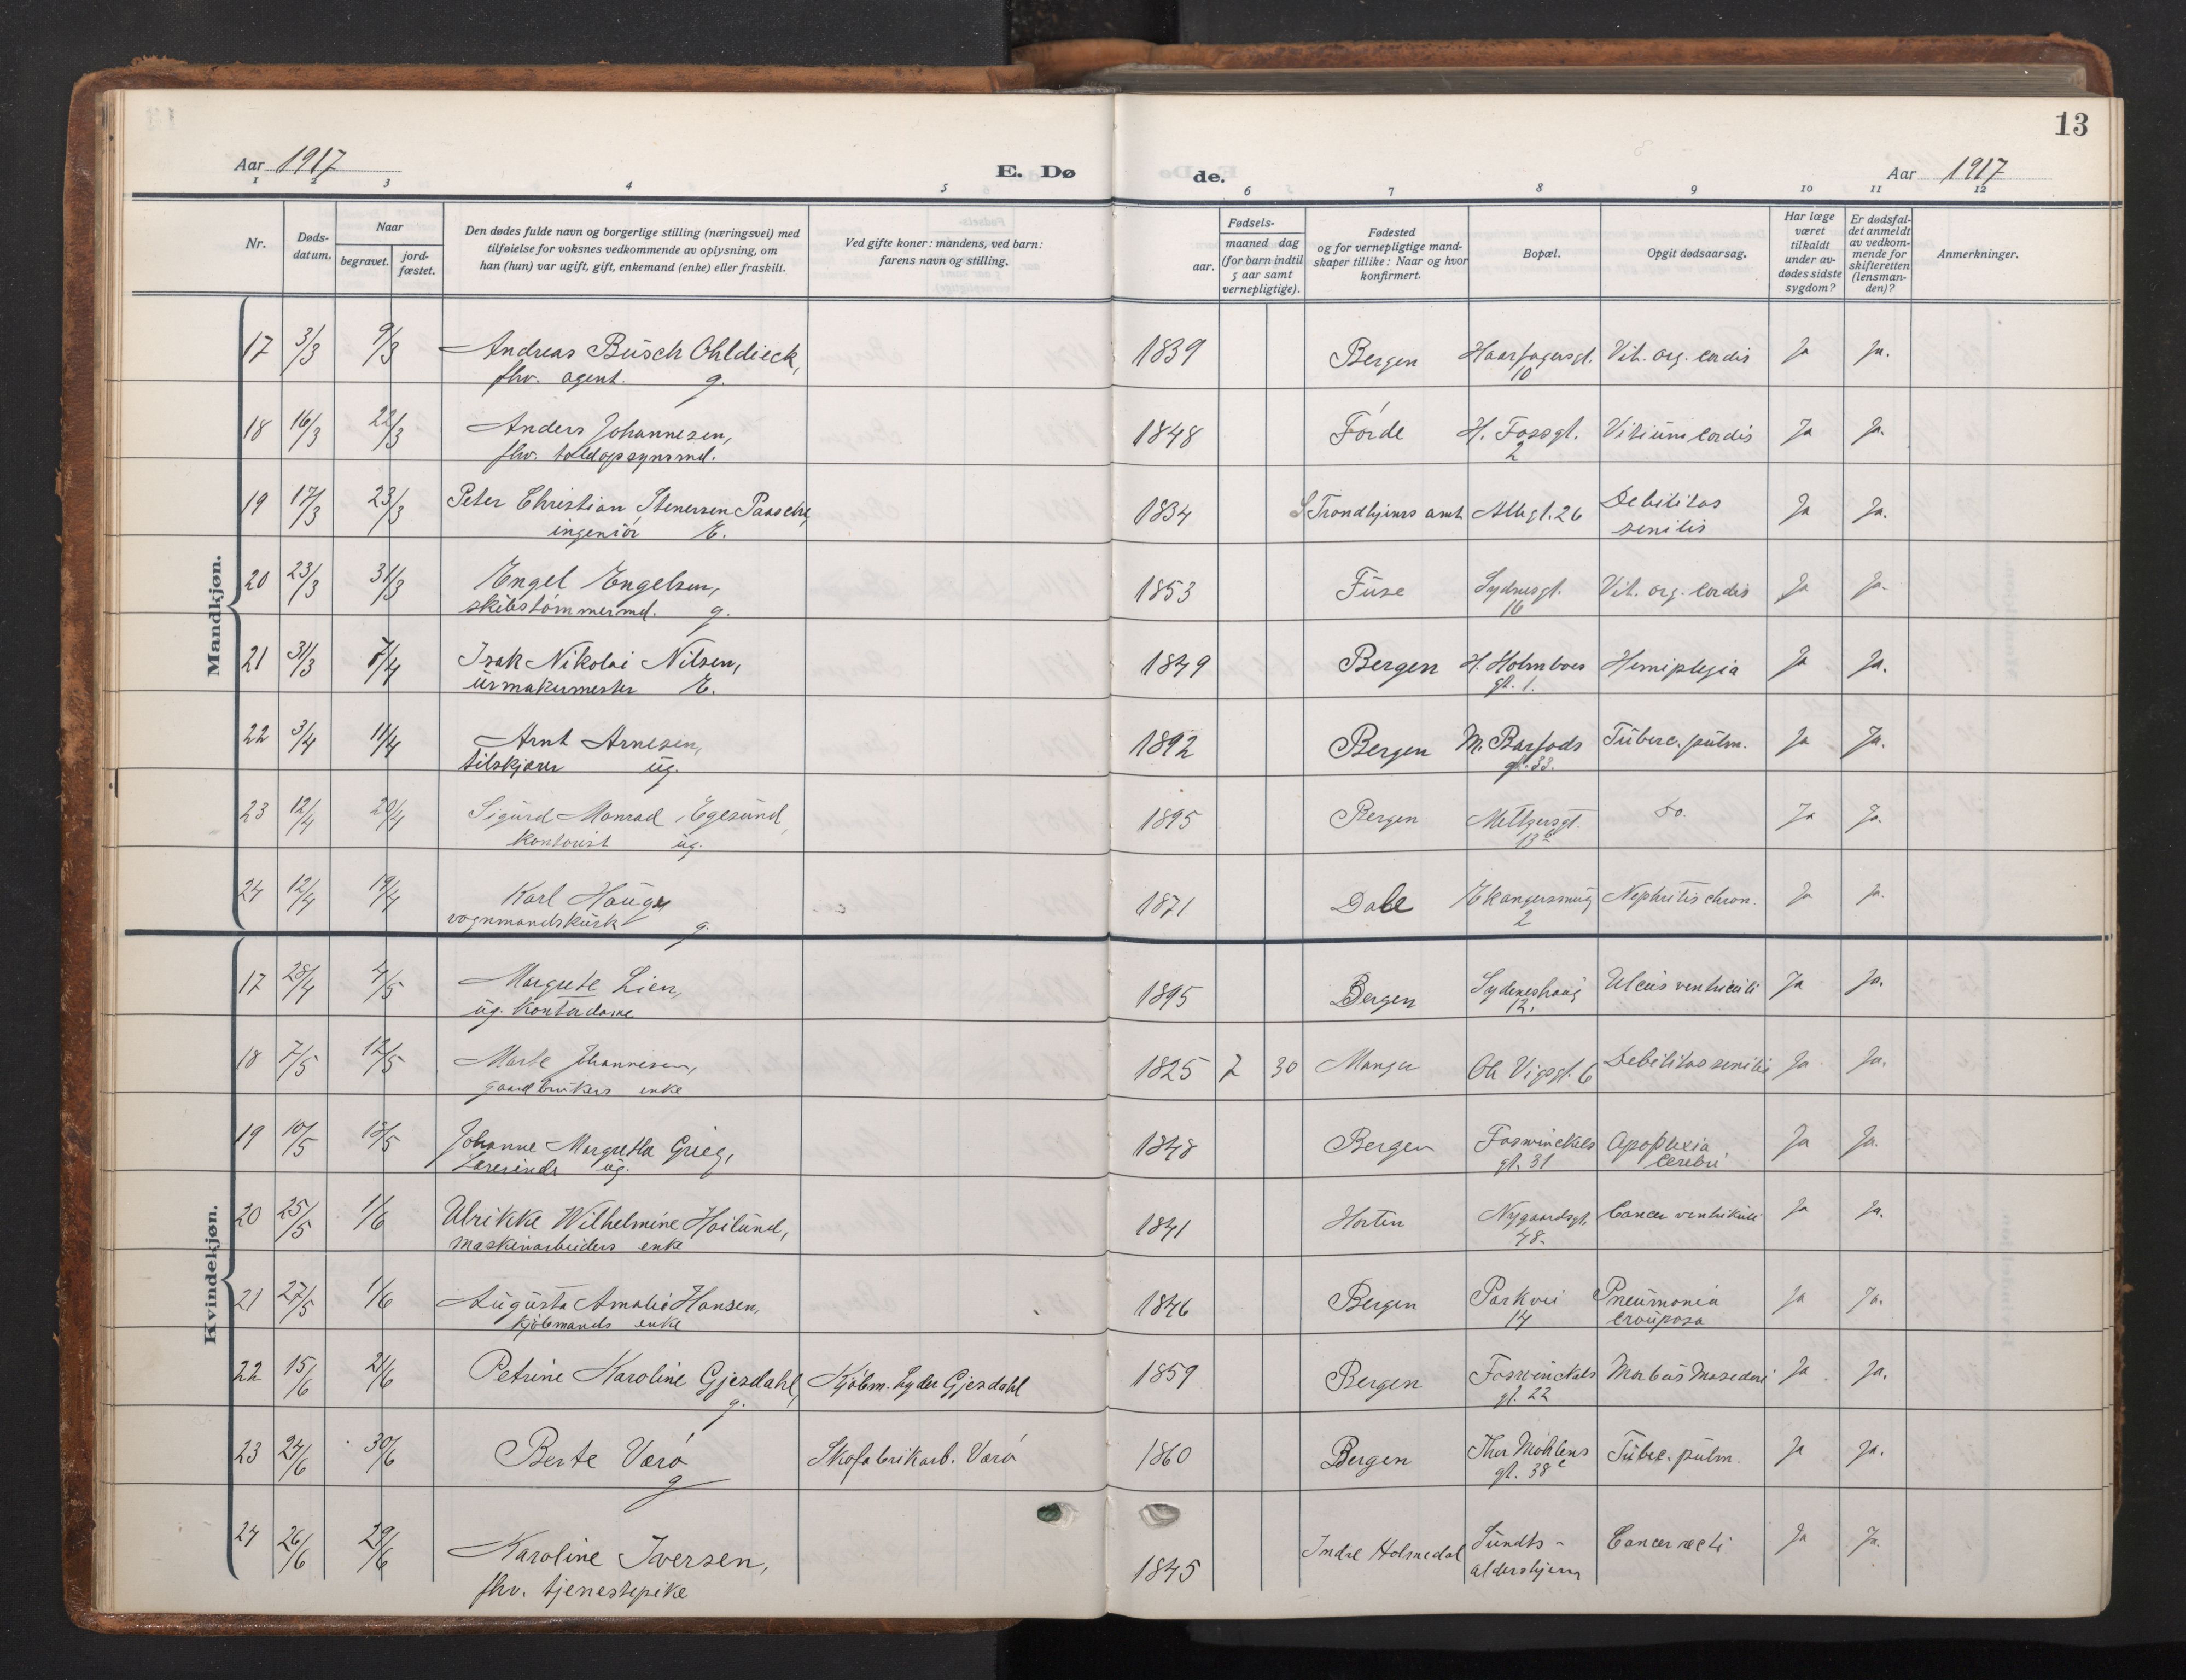 13
Aar 1917
E. Dø
de.
Aar 1917
1 2 3 4 5 6 7 8 9 10 11 12
Nr.
Døds-
datum.
Naar
begravet.
jord-
fæstet.
Den dødes fulde navn og borgerlige stilling (næringsvei) med
tilføielse for voksnes vedkommende av oplysning, om
han (hun) var ugift, gift, enkemand (enke) eller fraskilt.
Ved gifte koner: mandens, ved barn:
farens navn og stilling.
Fødsels-
aar.
maaned dag
(for barn indtil
5 aar samt
vernepligtige).
Fødested
og for vernepligtige mand-
skaper tillike: Naar og hvor
konfirmert.
Bopæl.
Opgit dødsaarsag.
Har læge
været
tilkaldt
under av-
dødes sidste
sygdom?
Er dødsfal-
det anmeldt
av vedkom-
mende for
skifteretten
(lensman-
den)?
Anmerkninger.
Mandkjøn.
17 3/3 9/3 Andreas Busch Ohldieck, 1839 Bergen Haarfagersgt. Vit. org. cordis Ja Ja.
fhv. agent. g. 10
18 16/3 22/3 Anders Johannesen, 1848 Förde H. Fossgt. Vitium cordis Ja Ja.
fhv. toldopsynsmd. 2
19 17/3 23/3 Peter Christian Stenersen Paasche, 1834 S Trondhjems amt Allégt. 26 Debilitas Ja Ja.
ingeniör E. senilis
20 23/3 31/3 Engel Engelsen, 1853 Fuse Sydnesgt. Vit. org. cordis Ja Ja.
skibstömmermd. g. 16
21 31/3 7/4 Isak Nikolai Nilsen, 1849 Bergen H. Holmboes Hemiplegia Ja Ja.
urmakermester E. gt. 1.
22 3/4 11/4 Arnt Arnesen, 1892 Bergen M. Barfods Tuberc. pulm. Ja Ja.
tilskjærer ug. gt. 33.
23 12/4 20/4 Sigurd Monrad Egesund, 1895 Bergen Meltzersgt. Do. Ja Ja.
kontorist ug.
24 12/4 19/4 Karl Hauge 1871 Dale Ekangersmug Nephritis chron. Ja Ja.
vognmandskusk g. 2
Kvindekjøn.
17 28/4 4/5 Margrete Lien, 1895 Bergen Sydneshaug Ulcus ventriculi Ja Ja.
ug. kontordame 12.
18 7/5 12/5 Marte Johannesen, 1825 7 30 Manger Ole Vigsgt. 6 Debilitas senilis Ja Ja.
gaardbrukers enke
19 10/5 15/5 Johanne Margretha Grieg, 1848 Bergen Foswinckels Apoplexia Ja Ja.
Lærerinde ug. gt. 31 cerebri
20 25/5 1/6 Ulrikke Wilhelmine Hoilund, 1841 Horten Nygaardsgt. Cancer ventrikuli Ja Ja.
maskinarbeiders enke 48.
21 27/5 1/6 Augusta Amalie Hansen, 1846 Bergen Parkvei Pneumonia Ja Ja.
kjöbmands enke 14 crouposa
22 15/6 21/6 Petrine Karoline Gjesdahl, Kjöbm. Lyder Gjesdahl 1859 Bergen Foswinckels Morbus Ja Ja.
g. gt. 22
23 24/6 30/6 Berte Værö Skofabrikarb. Værö 1860 Bergen Thor Möhlens Tuberc. pulm. Ja Ja.
g gt. 38c
24 26/6 29/6 Karoline Iversen, 1845 Indre Holmedal Sundts- Cancer recti Ja Ja.
fhv. tjenestepike aldershjem